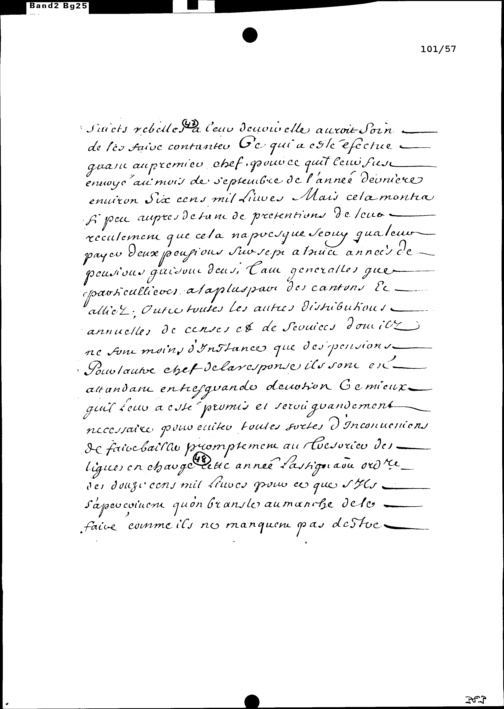 Band2 Bg25
101/57
Suiets rebelles (47) a leur devoir elle auroit soin
de les faire contanter Ce qui a esté éfectué
quant au premier chef, pour ce quil leur fust
envoyé au mois de septembre de l'année derniere
environ Six cens mil Livres Mais cela montra
si peu aupres de tant de pretentions de leur
reculement que cela na presque servy qua leur
payer deux pensions sur sept a huict années de
pensions qui sont deus, tant generalles que
particullieres a la pluspart des cantons et
alliez, Outre toutes les autres distributions
annuelles de censes et de services dont ilz
ne font moins d'Instance que des pensions
Pour lautre chef de la response ils sont en
attandant entre grande devotion Ce mieux
quil leur a esté promis et seroit grandement
necessaire pour eviter toutes sortes d'Inconveniens
de faire bailler promptement au Tresorier des
ligues en charge (48) cette année l'assignaõn ordre
des douze cens mil livres pour ce que s'ils
s'apercoivent quon bransle au manche de le
faire comme ils ne manquent pas destre